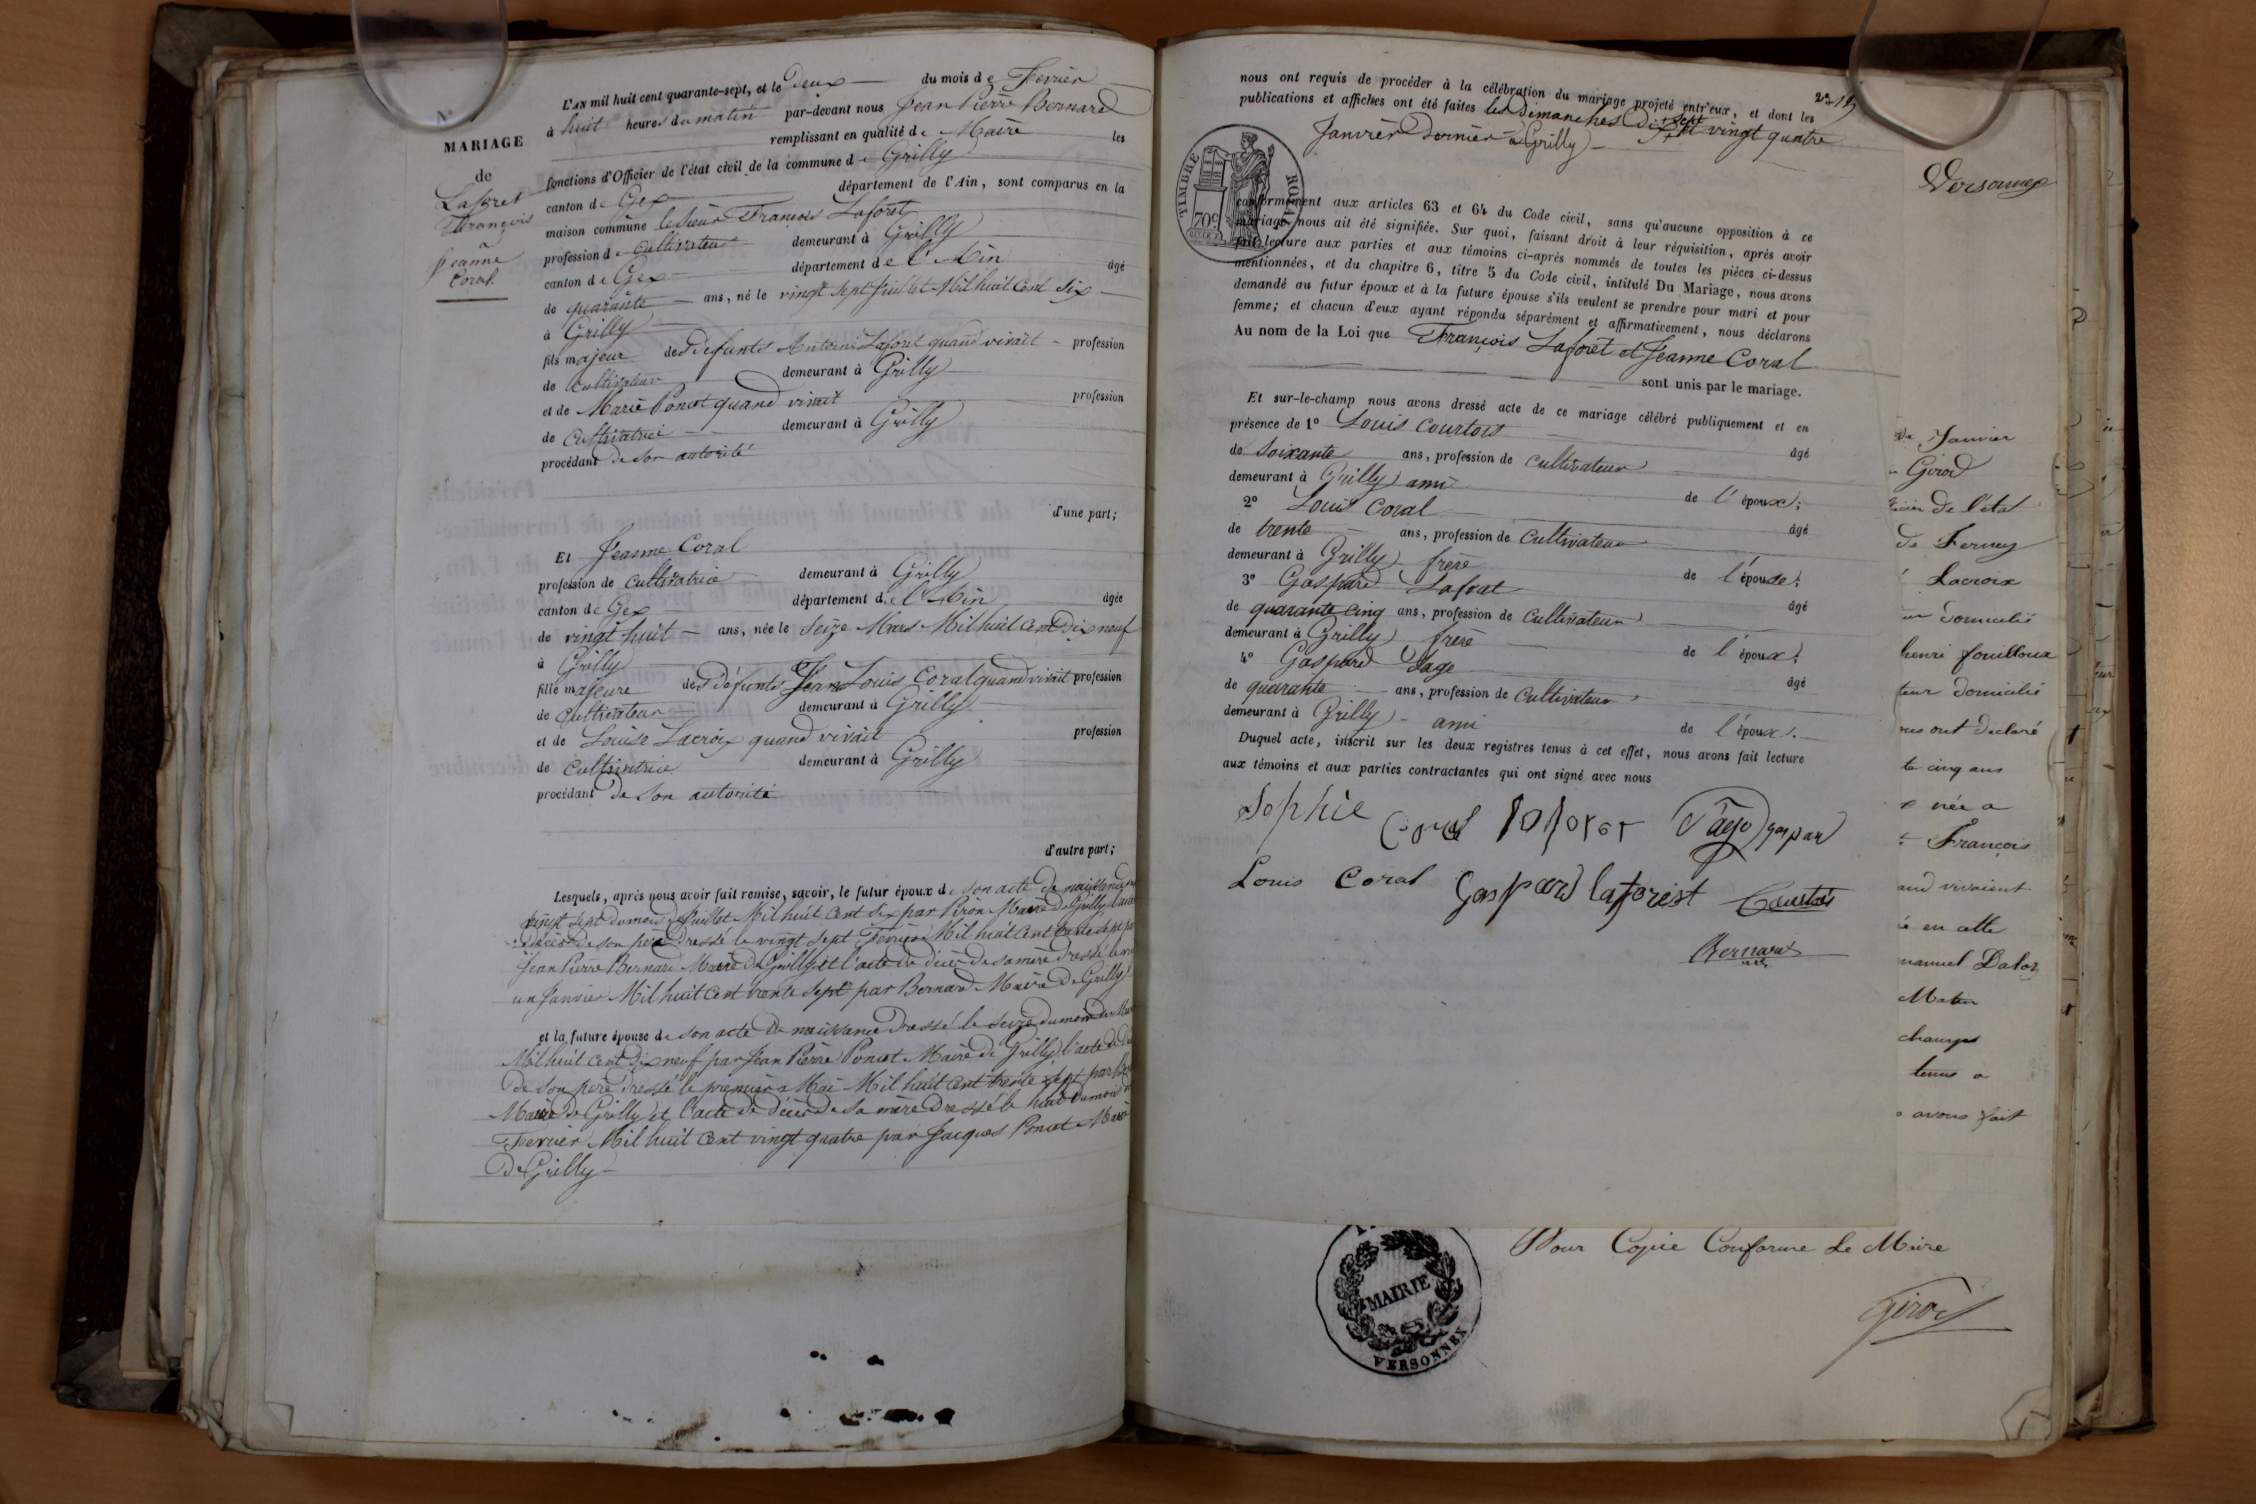 N°
MARIAGE
de
Laforet
François
Jeanne
Coral.
L'AN mil huit cent quarante-sept, et le deux du mois de Fevrier
à huit heures du matin par-devant nous Jean Pierre Bernard
remplissant en qualité de Maire les
fonctions d'Officier de l'état civil de la commune de Grilly
canton de Gex département de l'Ain, sont comparus en la
maison commune le Sieur François Laforet
profession de cultivateur demeurant à Grilly
canton de Gex département de l'Ain âgé
de quarante ans, né le vingt sept Juillet Mil huit cent six
à Grilly
fils majeur des défunts Antoine Laforet quand vivait profession
de cultivateur demeurant à Grilly
et de Marie Poncet quand vivait profession
de cultivatrice demeurant à Grilly
procédant de son autorité
d'une part;
Et Jeanne Coral
profession de cultivatrice demeurant à Grilly
canton de Gex département de l'Ain âgée
de vingt huit ans, née le Seize Mars Mil huit cent dix neuf
à Grilly
fille majeure des défunts Jean Louis Coral quand vivait profession
de cultivateur demeurant à Grilly
et de Louise Lacroix quand vivait profession
de cultivatrice demeurant à Grilly
procédant de son autorité
d'autre part;
Lesquels, après nous avoir fait remise, savoir, le futur époux de son acte de naissance
vingt sept du mois de Juillet Mil huit cent six par Piron Maire de Grilly
décès de son père dressé le vingt sept Fevrier Mil huit cent trente sept par
Jean Pierre Bernard Maire de Grilly et l'acte de décès de sa mère dressé le
un Janvier Mil huit cent trente sept par Bernard Maire de Grilly
et la future épouse de son acte de naissance dressé le seize du mois de Mars
Mil huit cent dix neuf par Jean Pierre Poncet Maire de Grilly l'acte de
de son père dressé le premier Mai Mil huit cent trente sept par
Maire de Grilly et l'acte de décès de sa mère dressé le huit du mois
Fevrier Mil huit cent vingt quatre par Jacques Poncet Maire
de Grilly
nous ont requis de procéder à la célébration du mariage projeté entr'eux, et dont les
publications et affiches ont été faites les Dimanches dix sept et vingt quatre
Janvier Dernier à Grilly
TIMBRE ROYAL
70c
conformément aux articles 63 et 64 du Code civil, sans qu'aucune opposition à ce
mariage nous ait été signifiée. Sur quoi, faisant droit à leur réquisition, après avoir
fait lecture aux parties et aux témoins ci-après nommés de toutes les pièces ci-dessus
mentionnées, et du chapitre 6, titre 5 du Code civil, intitulé Du Mariage, nous avons
demandé au futur époux et à la future épouse s'ils veulent se prendre pour mari et pour
femme; et chacun d'eux ayant répondu séparément et affirmativement, nous déclarons
Au nom de la Loi que François Laforêt et Jeanne Coral
sont unis par le mariage.
Et sur-le-champ nous avons dressé acte de ce mariage célébré publiquement et en
présence de 1° Louis Courtois âgé
de soixante ans, profession de cultivateur
demeurant à Grilly ami de l'époux;
2° Louis Coral âgé
de trente ans, profession de Cultivateur
demeurant à Grilly frère de l'épouse;
3° Gaspard Laforat âgé
de quarante cinq ans, profession de Cultivateur
demeurant à Grilly frère de l'époux;
4° Gaspard Page âgé
de quarante ans, profession de Cultivateur
demeurant à Grilly ami de l'époux.
Duquel acte, inscrit sur les deux registres tenus à cet effet, nous avons fait lecture
aux témoins et aux parties contractantes qui ont signé avec nous
Sophie Coral laforet Page gaspar
Louis Coral Gaspard laforest Courtois
Bernard
Versonnex
de Janvier
Girod
de l'état
de Ferney
Lacroix
domicilié
henri fouilloux
teur domicilié
ous ont declaré
te cinq ans
née a
François
and vivaient
é en cette
manuel Daloz
Mater
champs
tenus a
avons fait
Pour Copie Conforme Le Maire
MAIRIE
VERSONNEX
Girod